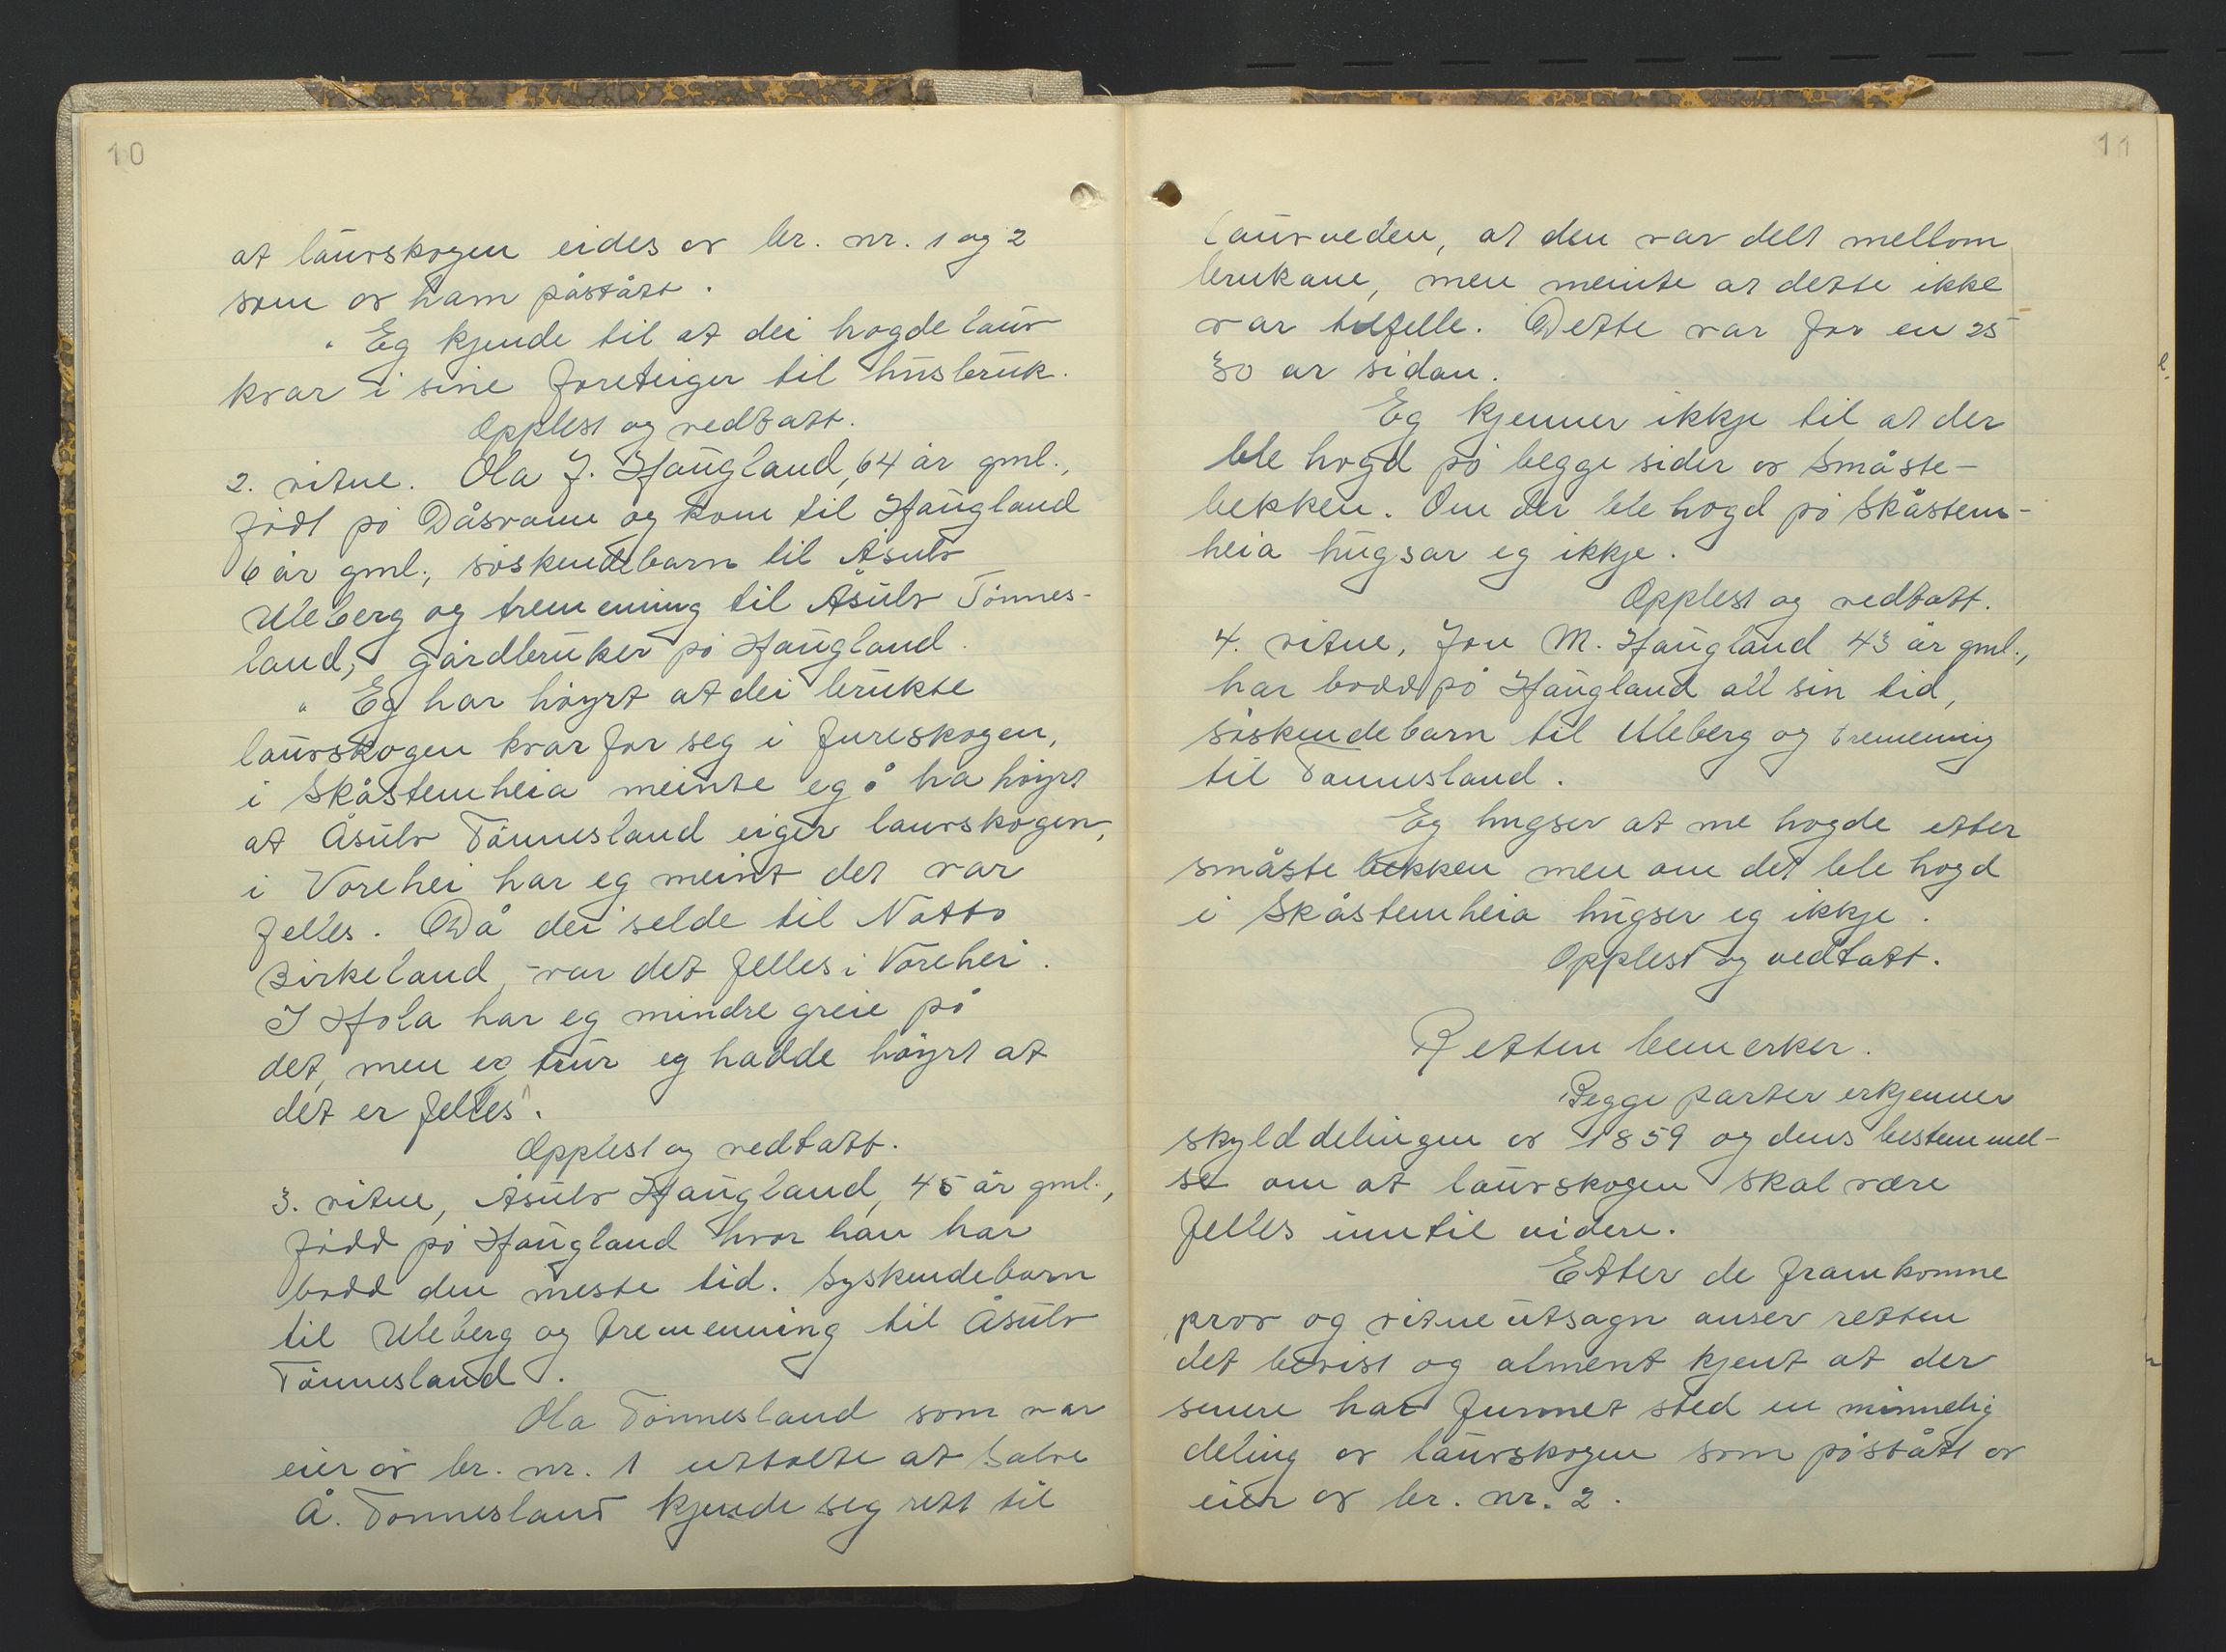 10
at lauvskogen eides av br. nr. 1 og 2
som av ham påstått.
" Eg kjende til at dei hogde lauv
kvar i sine foreteiger til husbruk.
Opplest og vedtatt.
2. vitne. Ola J. Haugland, 64 år gml.,
født på Dåsvann og kom til Haugland
6 år gml., søskendebarn til Åsulv
Uleberg og tremening til Åsulv Tønnes-
land, gårdbruker på Haugland.
" Eg har høyrt at dei brukte
lauvskogen kvar for seg i fureskogen,
i Skåstemheia meinte eg å ha høyrt
at Åsulv Tønnesland eiger lauvskogen,
i Vorehei har eg meint det var
felles. Då dei selde til Natto
Birkeland, var det felles i Vorehei.
I Hola har eg mindre greie på
det, men eg trur eg hadde høyrt at
det er felles".
Opplest og vedtatt.
3. vitne, Åsulv Haugland, 45 år gml.,
fødd på Haugland hvor han har
bodd den meste tid. Syskendebarn
til Uleberg og tremenning til Åsulv
Tønnesland.
Ola Tønnesland som var
eier av br. nr. 1 uttalte at Salve
Å. Tønnesland kjende seg rett til
11
lauvveden, at den var delt mellom
brukane, men meinte at dette ikke
var tilfelle. Dette var for en 25
30 år sidan.
Eg kjenner ikkje til at der
ble hogd på begge sider av Småste-
bekken. Om der ble hogd på Skåstem-
heia hugsar eg ikkje.
Opplest og vedtatt.
4. vitne, Jon M. Haugland 43 år gml.,
har bodd på Haugland all sin tid,
søskendebarn til Uleberg og tremenning
til Tønnesland.
Eg hugser at me hogde etter
småstebekken men om det ble hogd
i Skåstemheia hugser eg ikkje.
Opplest og vedtatt.
Retten bemerker.
Begge parter erkjenner
skylddelingen av 1859 og dens bestemmel-
se om at lauvskogen skal være
felles inntil videre.
Etter de framkomne
prov og vitneutsagn anser retten
det bevist og alment kjent at der
senere har funnet sted en minnelig
deling av lauvskogen som påstått av
eier av br. nr. 2.